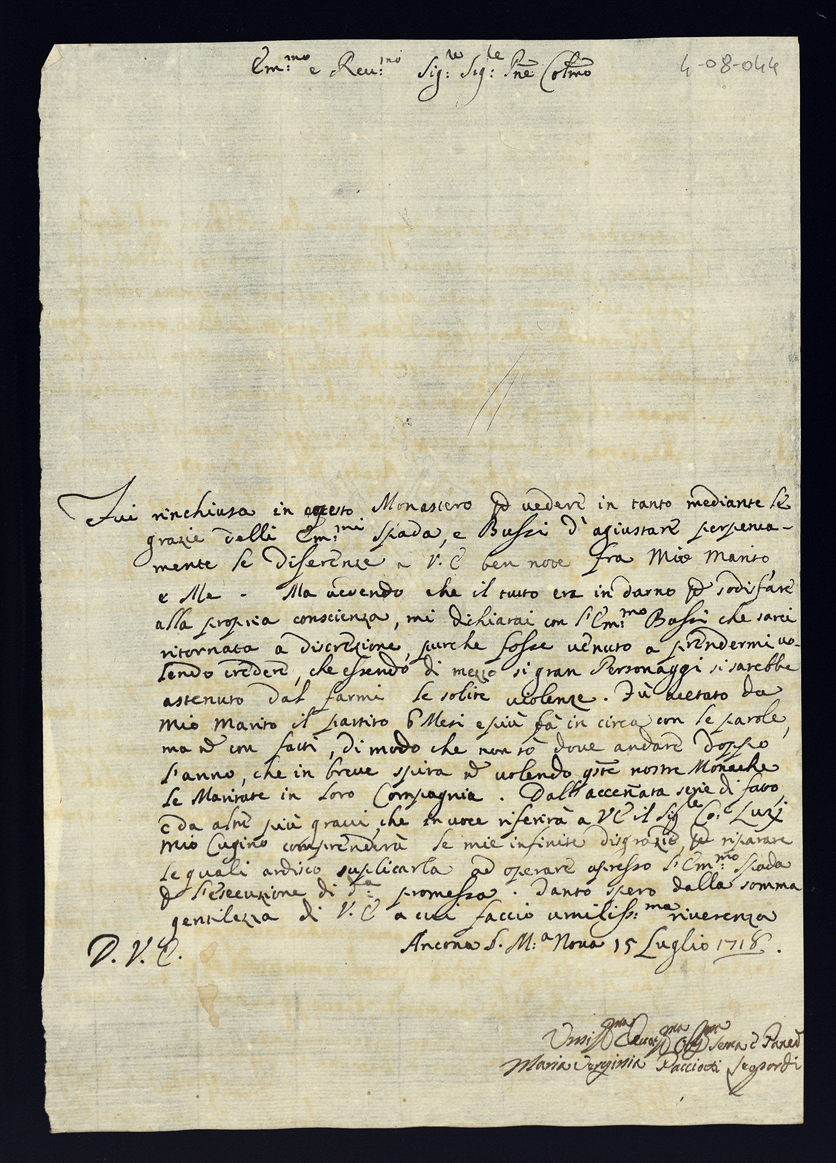 Em:mo e Reu:mo Sig:re Sig:re Pne Colmo
4-08-044
Fui rinchiusa in questo Monastero p vedere in tanto mediante le
grazie delli Em:mi Spada, e Bussi d'agiustare perpetua-
mente le diferenze a V.E ben note fra Mio Marito,
e Me. Ma avendo che il tutto era in darno p sodisfare
alla propria conscienza, mi dichiarai con l'Em:mo Bussi che sarei
ritornata a discrezione, purche fosse venuto a prendermi vo-
lendo credere, che essendo di mezzo si gran Personaggi si sarebbe
astenuto dal farmi le solite violenze. Fù acetato da
mio marito il partito 6 Mesi e più fà in circa con le parole,
ma nò con fatti, di modo che non sò dove andare doppo
l'anno, che in breve spira nò volendo qste nostre Monache
le Maritate in loro Compagnia. Dall'accenata serie di fatto,
e da altre più gravi, che in voce riferirà a VE il Sigre Co: Luzj
mio Cugino comprenderà le mie infinite disgrazie, p riparare
le quali ardisco suplicarla ad operare apresso l'Em:mo Spada
p l'esecuzione di da promessa. Tanto spero dalla somma
gentilezza di V.E a cui faccio umiliss:ma riverenza
D. V. E. Ancona S. M:a Nova 15 Luglio 1718.
Umilma Devotma Obma Serva e Parente
Maria Verginia Pacciotti Leopardi